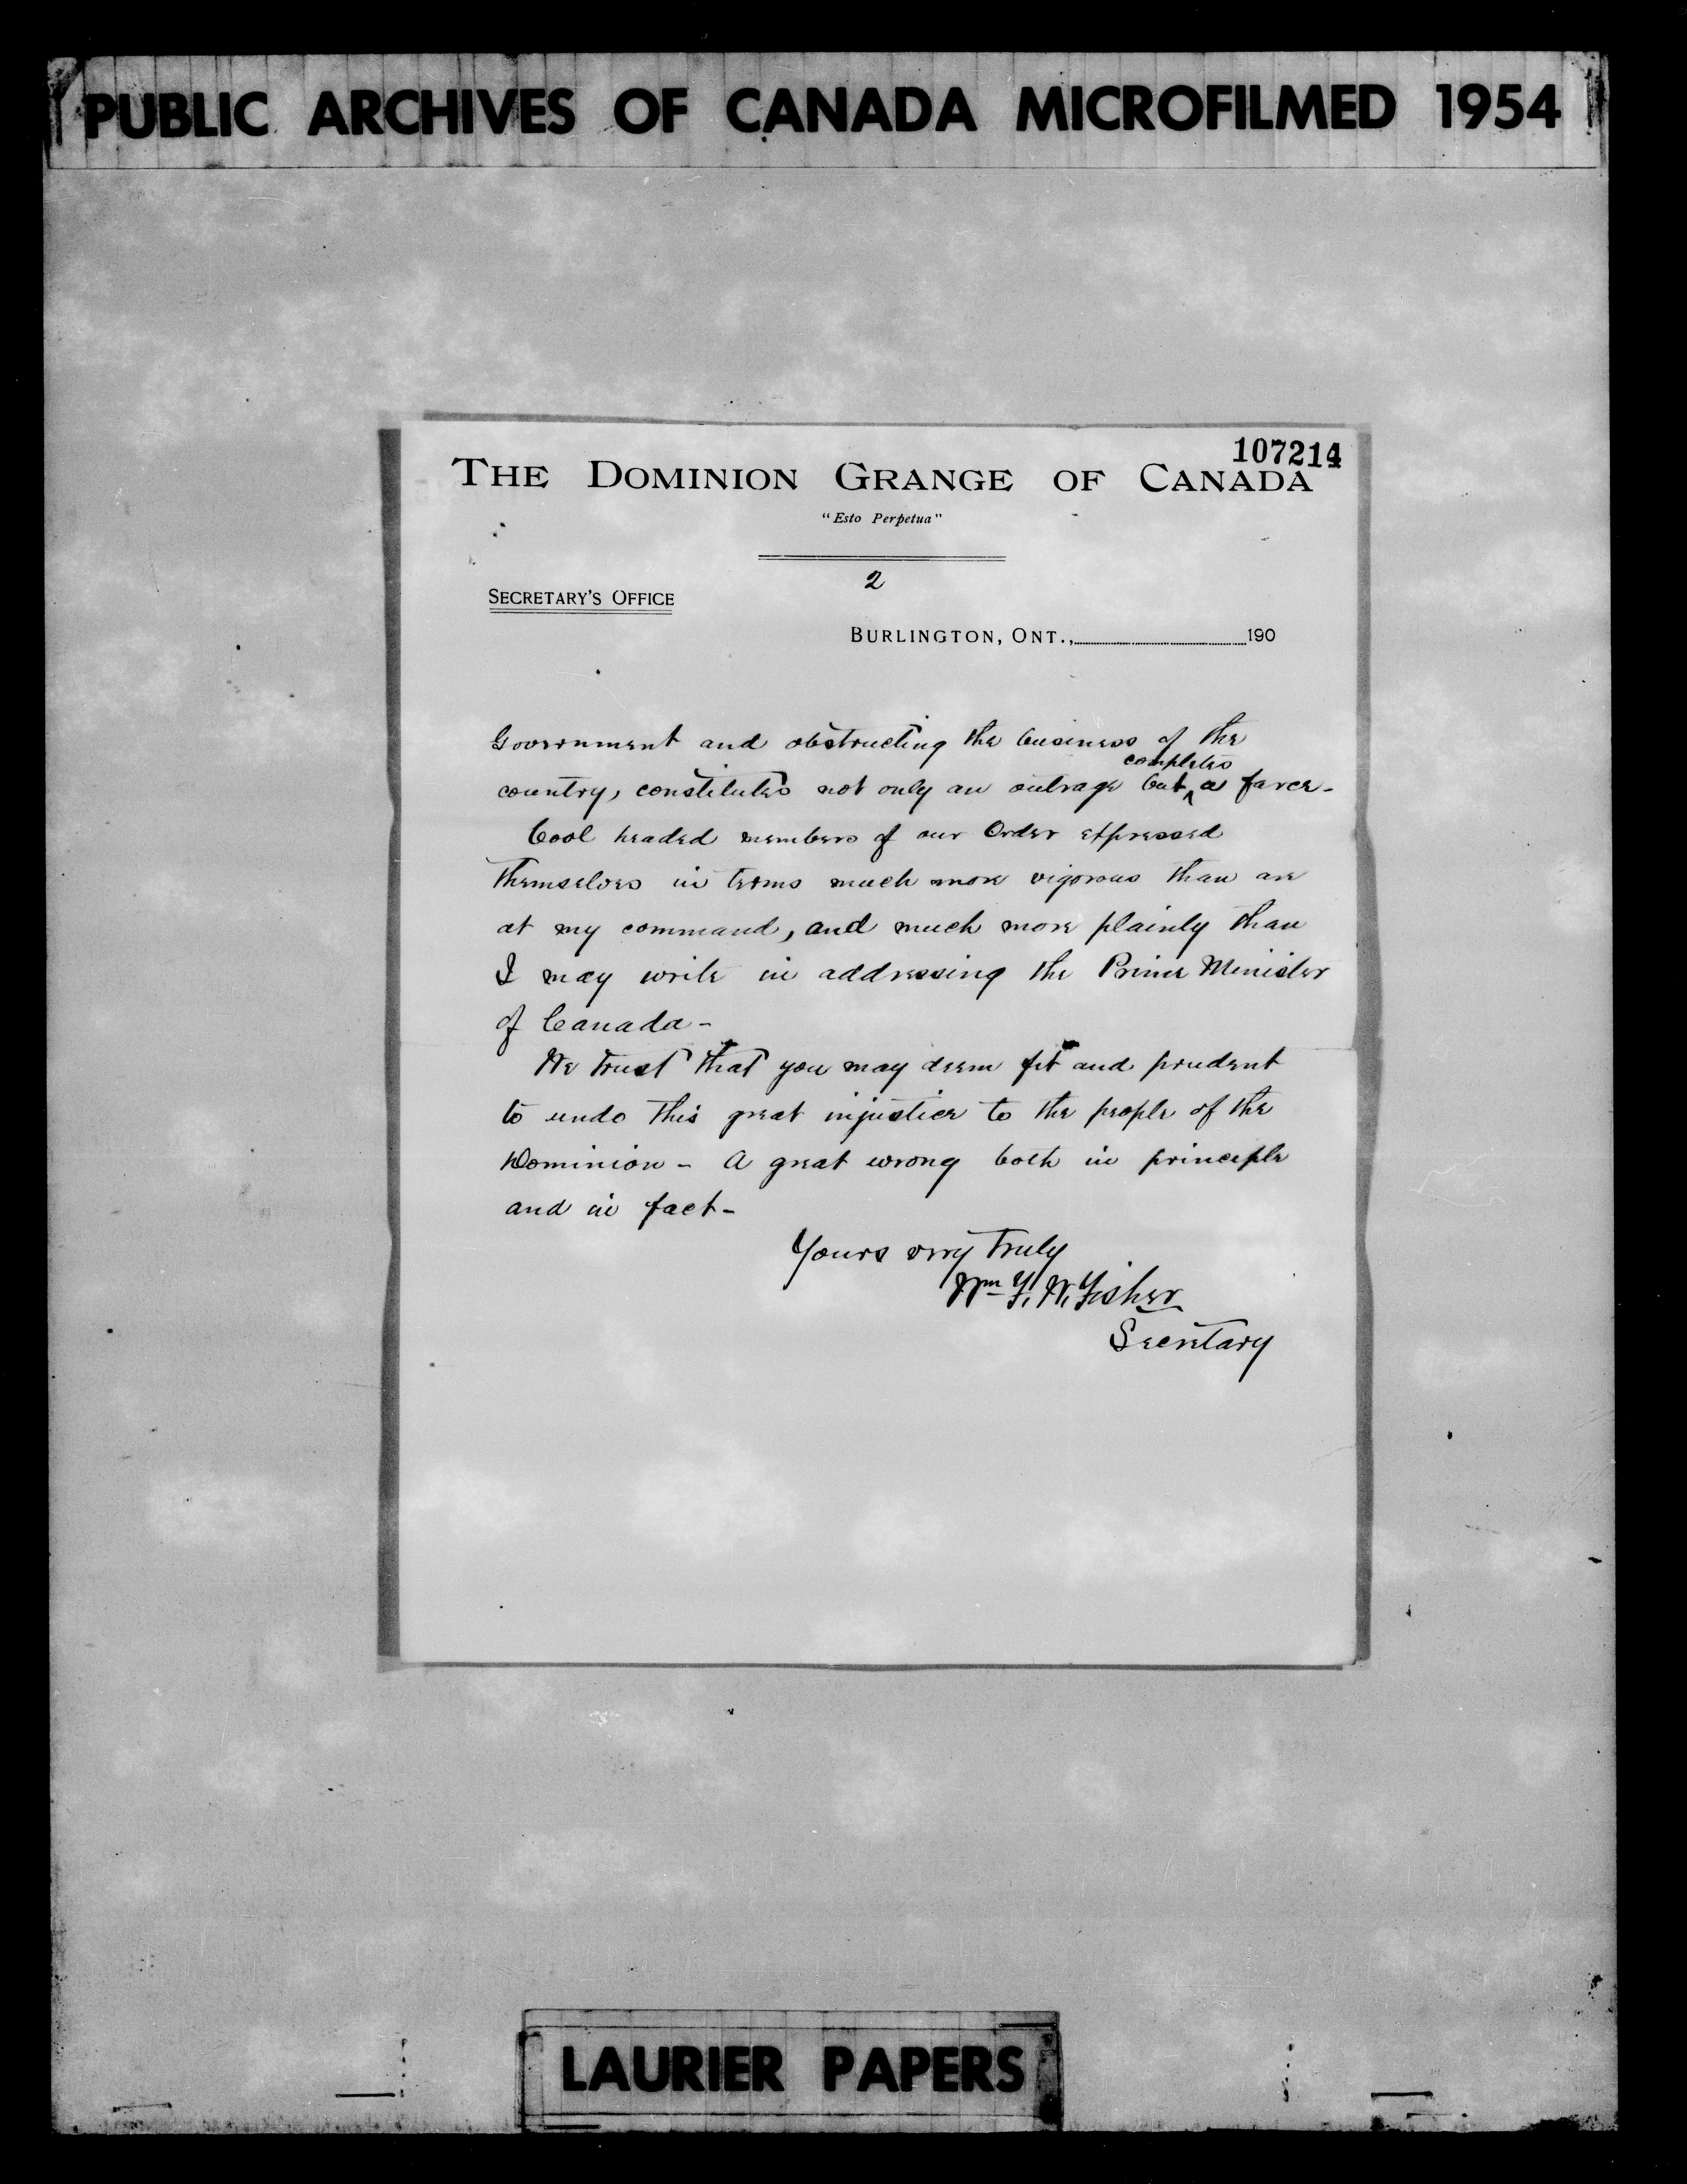 PUBLIC ARCHIVES OF CANADA MICROFILMED 1954
107214
THE DOMINION GRANGE OF CANADA
"Esto Perpetua"
2
SECRETARY'S OFFICE
BURLINGTON, ONT., 190
Government and obstructing the business of the
completes
country, constitutes not only an outrage but ^ a farce -
Cool headed members of our Order expressed
themselves in terms much more vigorous than are
at my command, and much more plainly than
I may write in addressing the Prime Minister
of Canada -
We trust that you may deem fit and prudent
to undo this great injustice to the people of the
Dominion - A great wrong both in principle
and in fact -
Yours very truly
Wm F. W. Fisher
Secretary
LAURIER PAPERS